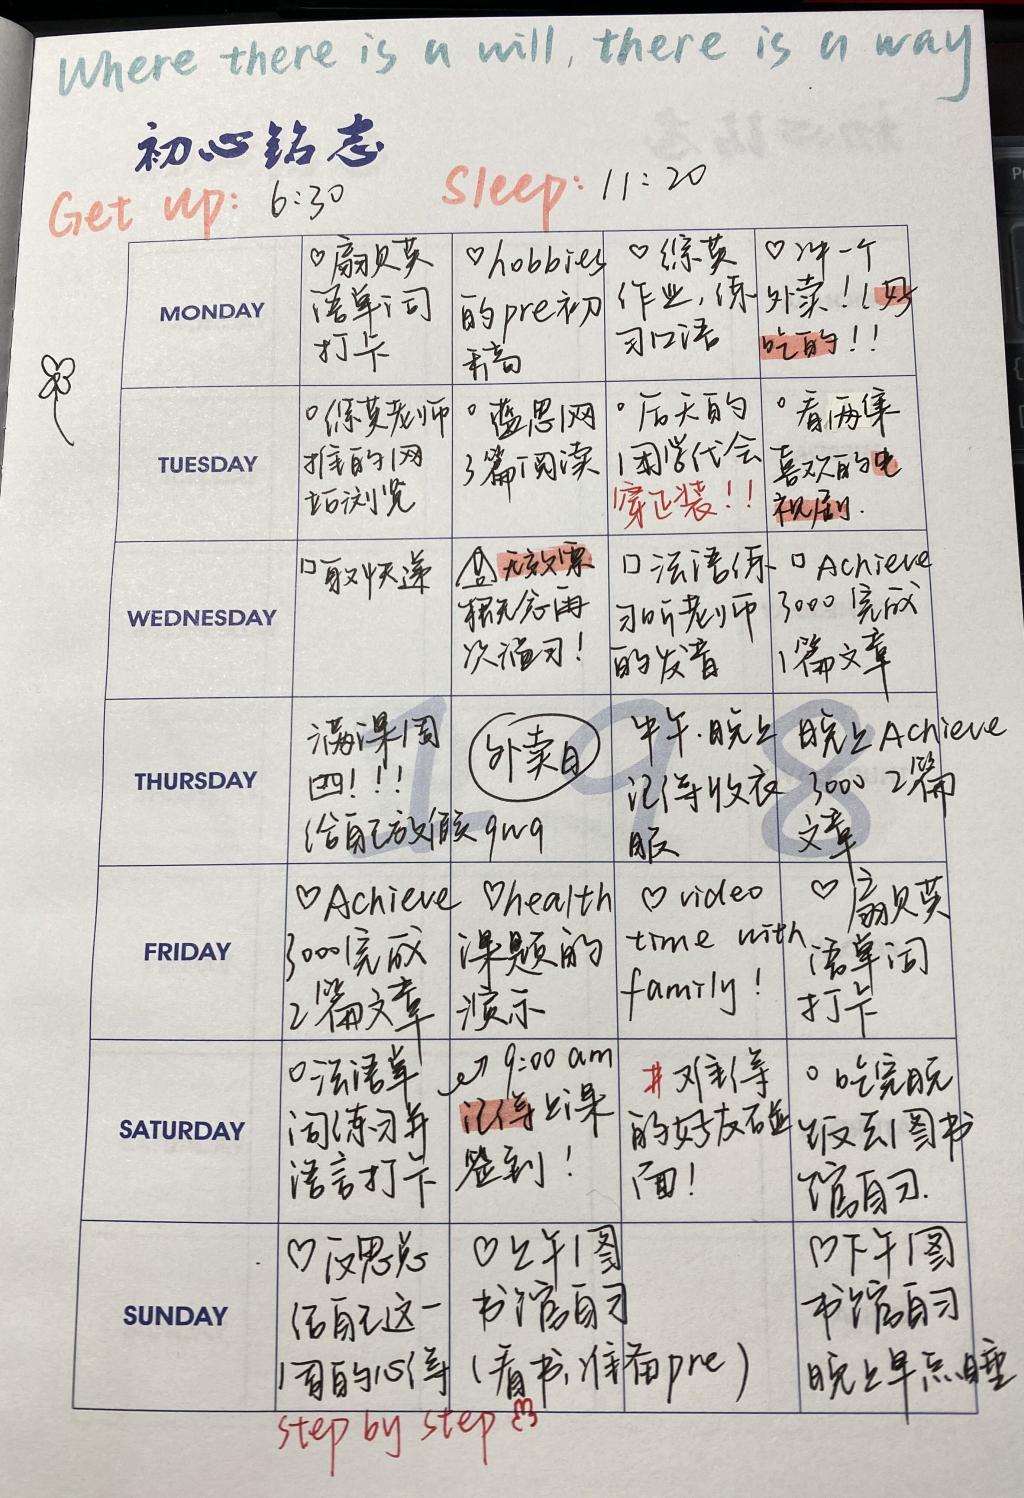 Where there is a will, there is a way
初心铭志
Get up: 6:30
Sleep: 11:20
MONDAY
♡扇贝英
语单词
打卡
♡hobbies
的pre初
稿
♡综英
作业,练
习口语
♡冲一个
外卖!(好
吃的!!
TUESDAY
○综英老师
推的网
站浏览
○蓝思网
3篇阅读
○后天的
团学代会
穿正装!!
○看两集
喜欢的电
视剧.
WEDNESDAY
□取快递
无效票
概念再
次温习!
□法语练
习听老师
的发音
□Achieve
3000完成
1篇文章
THURSDAY
满课周
四!!!
给自己放假 qwq
外卖日
中午.晚上
记得收衣
服
晚上Achieve
3000 2篇
文章
198
FRIDAY
♡Achieve
3000完成
2篇文章
♡health
课题的
演示
♡video
time with
family!
♡扇贝英
语单词
打卡
SATURDAY
○法语单
词练习并
语言打卡
9:00 am
记得上课
签到!
#难得
的好友碰
面!
○吃完晚
饭去图书
馆自习.
SUNDAY
♡反思总
结自己这一
周的心得
♡上午图
书馆自习
(看书,准备pre)
♡下午图
书馆自习
晚上早点睡
step by step